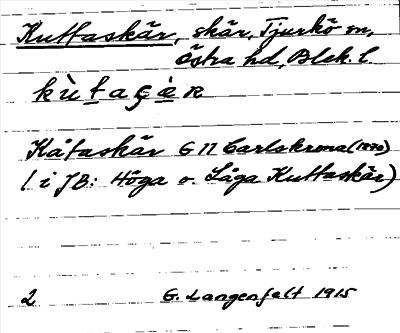 Kuttaskär, skär, Tjurkö sn,
Östra hd, Blek. l.
kùtaʂàR
Kåtaskär G 11 Carlskrona (1870)
(. i JB: Höga o. Låga Kuttaskär)
2 G. Langenfelt 1915